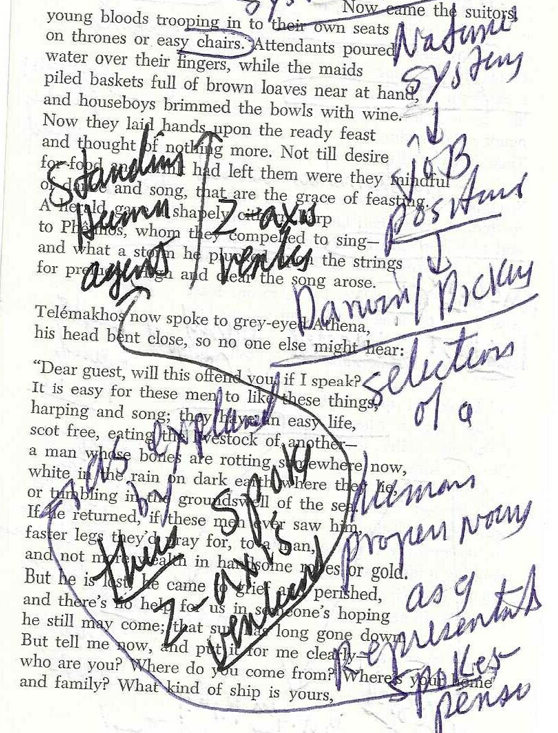 Now came the suitors,
young bloods trooping in to their own seats
on thrones or easy chairs. Attendants poured
water over their fingers, while the maids
piled baskets full of brown loaves near at hand,
and houseboys brimmed the bowls with wine.
Now they laid hands upon the ready feast
and thought of nothing more. Not till desire
for food and had left them were they mindful
of and song, that are the grace of feasting.
A herald gave a shapely harp
to Phêmios, whom they compelled to sing—
and what a storm he plucked the strings
for and clear the song arose.
Nature
system
↓
positure
↓
Darwin/
selection
of a
Standing
Human
agent
Z-axis
Telémakhos now spoke to grey-eyed Athena,
his head bent close, so no one else might hear:
“Dear guest, will this offend you, if I speak?
It is easy for these men to like these things,
harping and song; they have an easy life,
scot free, eating the livestock of another—
a man whose bones are rotting somewhere now,
white in the rain on dark earth where they lie,
or tumbling in the groundswell of the sea.
If he returned, if these men ever saw him,
faster legs they’d pray for, to a man,
and not more wealth in handsome robes or gold.
But he is lost; he came to grief and perished,
and there’s no help for us in someone’s hoping
he still may come; that sun has long gone down.
But tell me now, and put it for me clearly—
who are you? Where do you come from? Where’s your home
and family? What kind of ship is yours,
as explained
by
thus spake
Z-axis
human
proper noun
as a
representative
spokes-
person